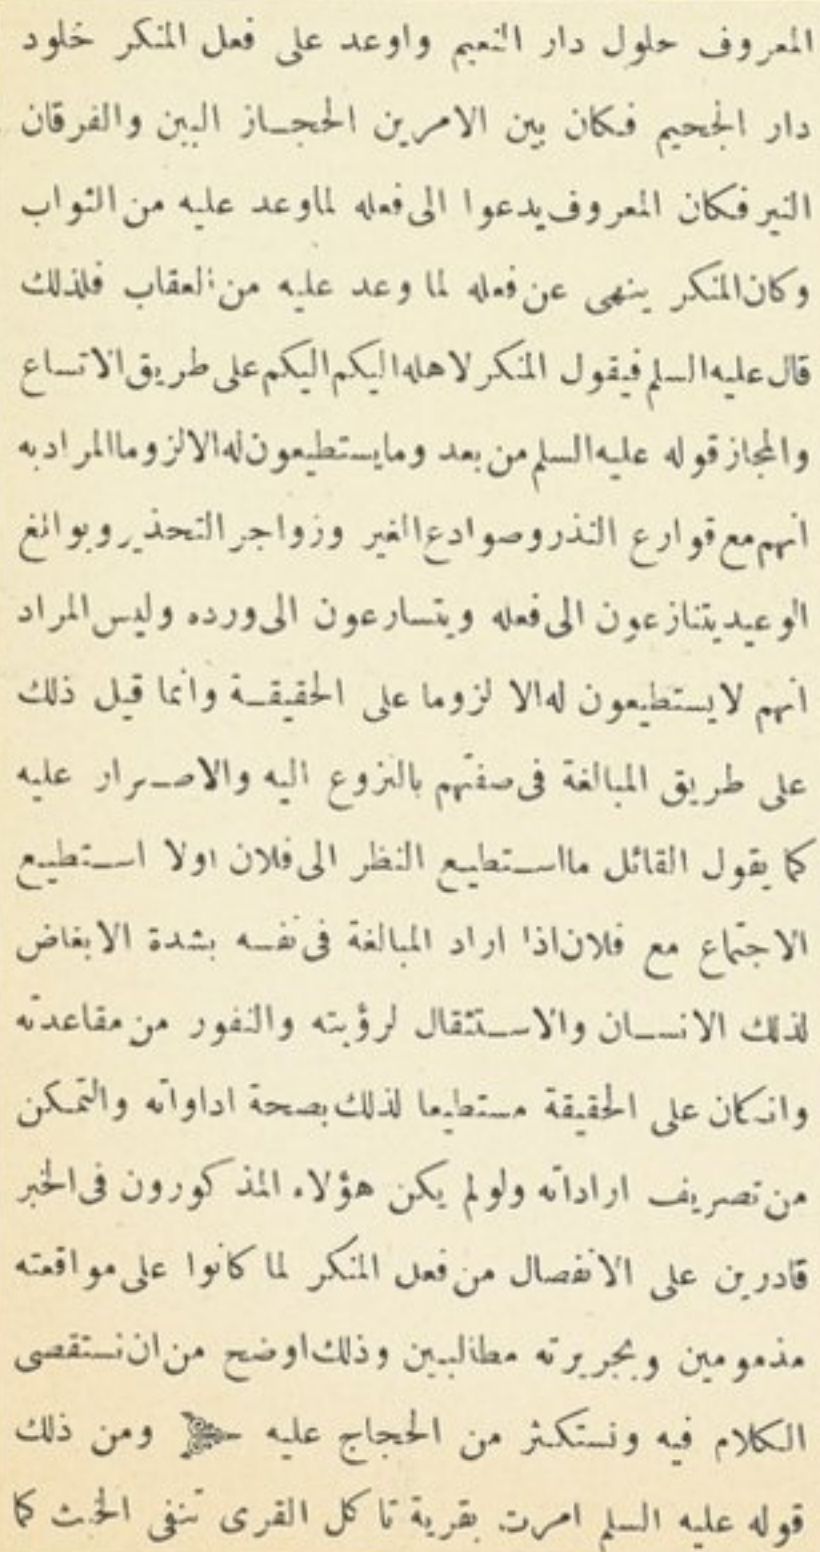 المعروف حلول دار النعيم واوعد على فعل المنكر خلود
دار الجحيم فكان بين الامرين الحجاز البين والفرقان
النير فكان المعروف يدعوا الى فعله لما وعد عليه من الثواب
وكان المنكر ينهى عن فعله لما وعد عليه من العقاب فلذلك
قال عليه السلم فيقول المنكر لاهله اليكم اليكم على طريق الاتساع
والمجاز قوله عليه السلم من بعد وما يستطيعون له الا لزوما المراد به
انهم مع قوارع النذر وصوادع الغير وزواجر التحذير وبوالغ
الوعيد يتنازعون الى فعله ويتسارعون الى ورده وليس المراد
انهم لا يستطيعون له الا لزوما على الحقيقة وانما قيل ذلك
على طريق المبالغة فى صفتهم بالنزوع اليه والاصرار عليه
كما يقول القائل ما استطيع النظر الى فلان اولا استطيع
الاجتماع مع فلان اذا اراد المبالغة فى نفسه بشدة الابغاض
لذلك الانسان والاستثقال لرؤيته والنفور من مقاعدته
وان كان على الحقيقة مستطيعا لذلك بصحة اداواته والتمكن
من تصريف اراداته ولو لم يكن هؤلاء المذكورون فى الخبر
قادرين على الانفصال من فعل المنكر لما كانوا على مواقعته
مذمومين وبجريرته مطالبين وذلك اوضح من ان نستقصى
الكلام فيه ونستكثر من الحجاج عليه ومن ذلك
قوله عليه السلم امرت بقرية تاكل القرى تنفى الخبث كما